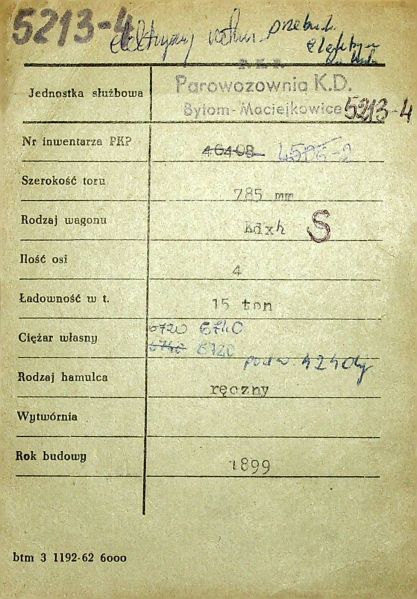 5213-4
przebud.
P.K.P.
Jednostka służbowa Parowozownia K.D.
Bytom-Maciejkowice 5213-4
Nr inwentarza PKP 46408
Szerokość toru 785 mm
Rodzaj wagonu Kdxh S
Ilość osi 4
Ładowność w t. 15 ton
6720 6740
Ciężar własny 6740 6720
Rodzaj hamulca ręczny
Wytwórnia
Rok budowy 1899
btm 3 1192-62 6000